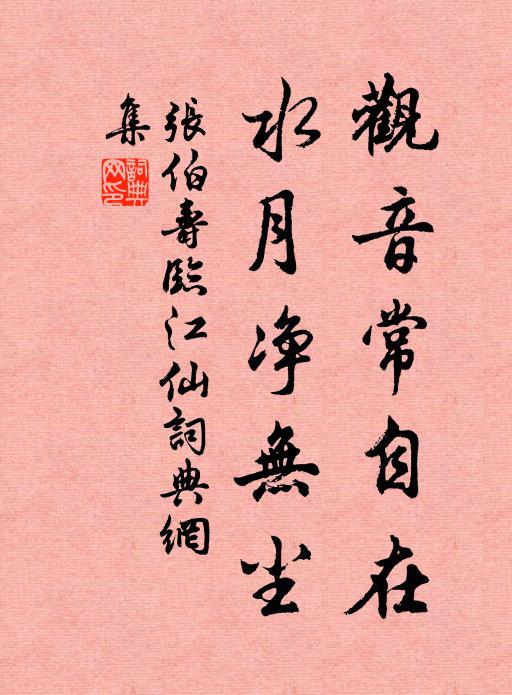 觀音常自在
水月净無尘
張伯壽臨江仙詞典網
集
詞典网印